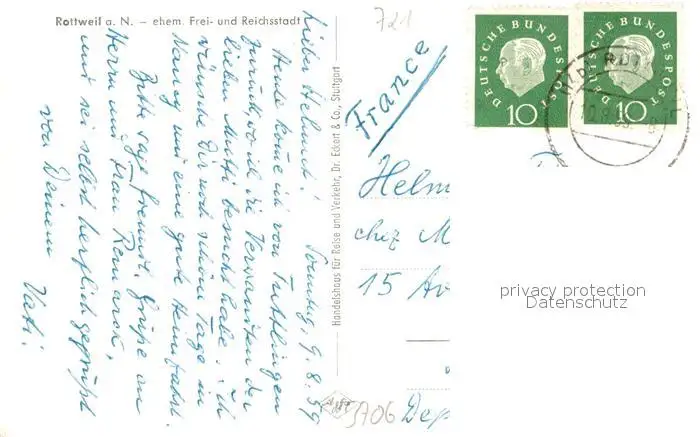 Rottweil a. N. – ehem. Frei- und Reichsstadt
Sonntag, 9.8.59
Lieber Helmut!
Heute komme ich von Tuttlingen
zurück, wo ich die Verwandten der
lieben Mutti besucht habe. Ich
wünsche Dir noch schöne Tage in
Nancy und eine gute Heimfahrt.
Bitte sage freundl. Grüße an
Herrn und Frau
und sei selbst herzlich gegrüßt
von Deinem
Vati!
Handelshaus für Reise und Verkehr, Dr. Eckert & Co., Stuttgart
721
France
DEUTSCHE BUNDESPOST
10
DEUTSCHE BUNDESPOST
10
Helm
chez M
15 Av
Dep
3706
privacy protection
Datenschutz